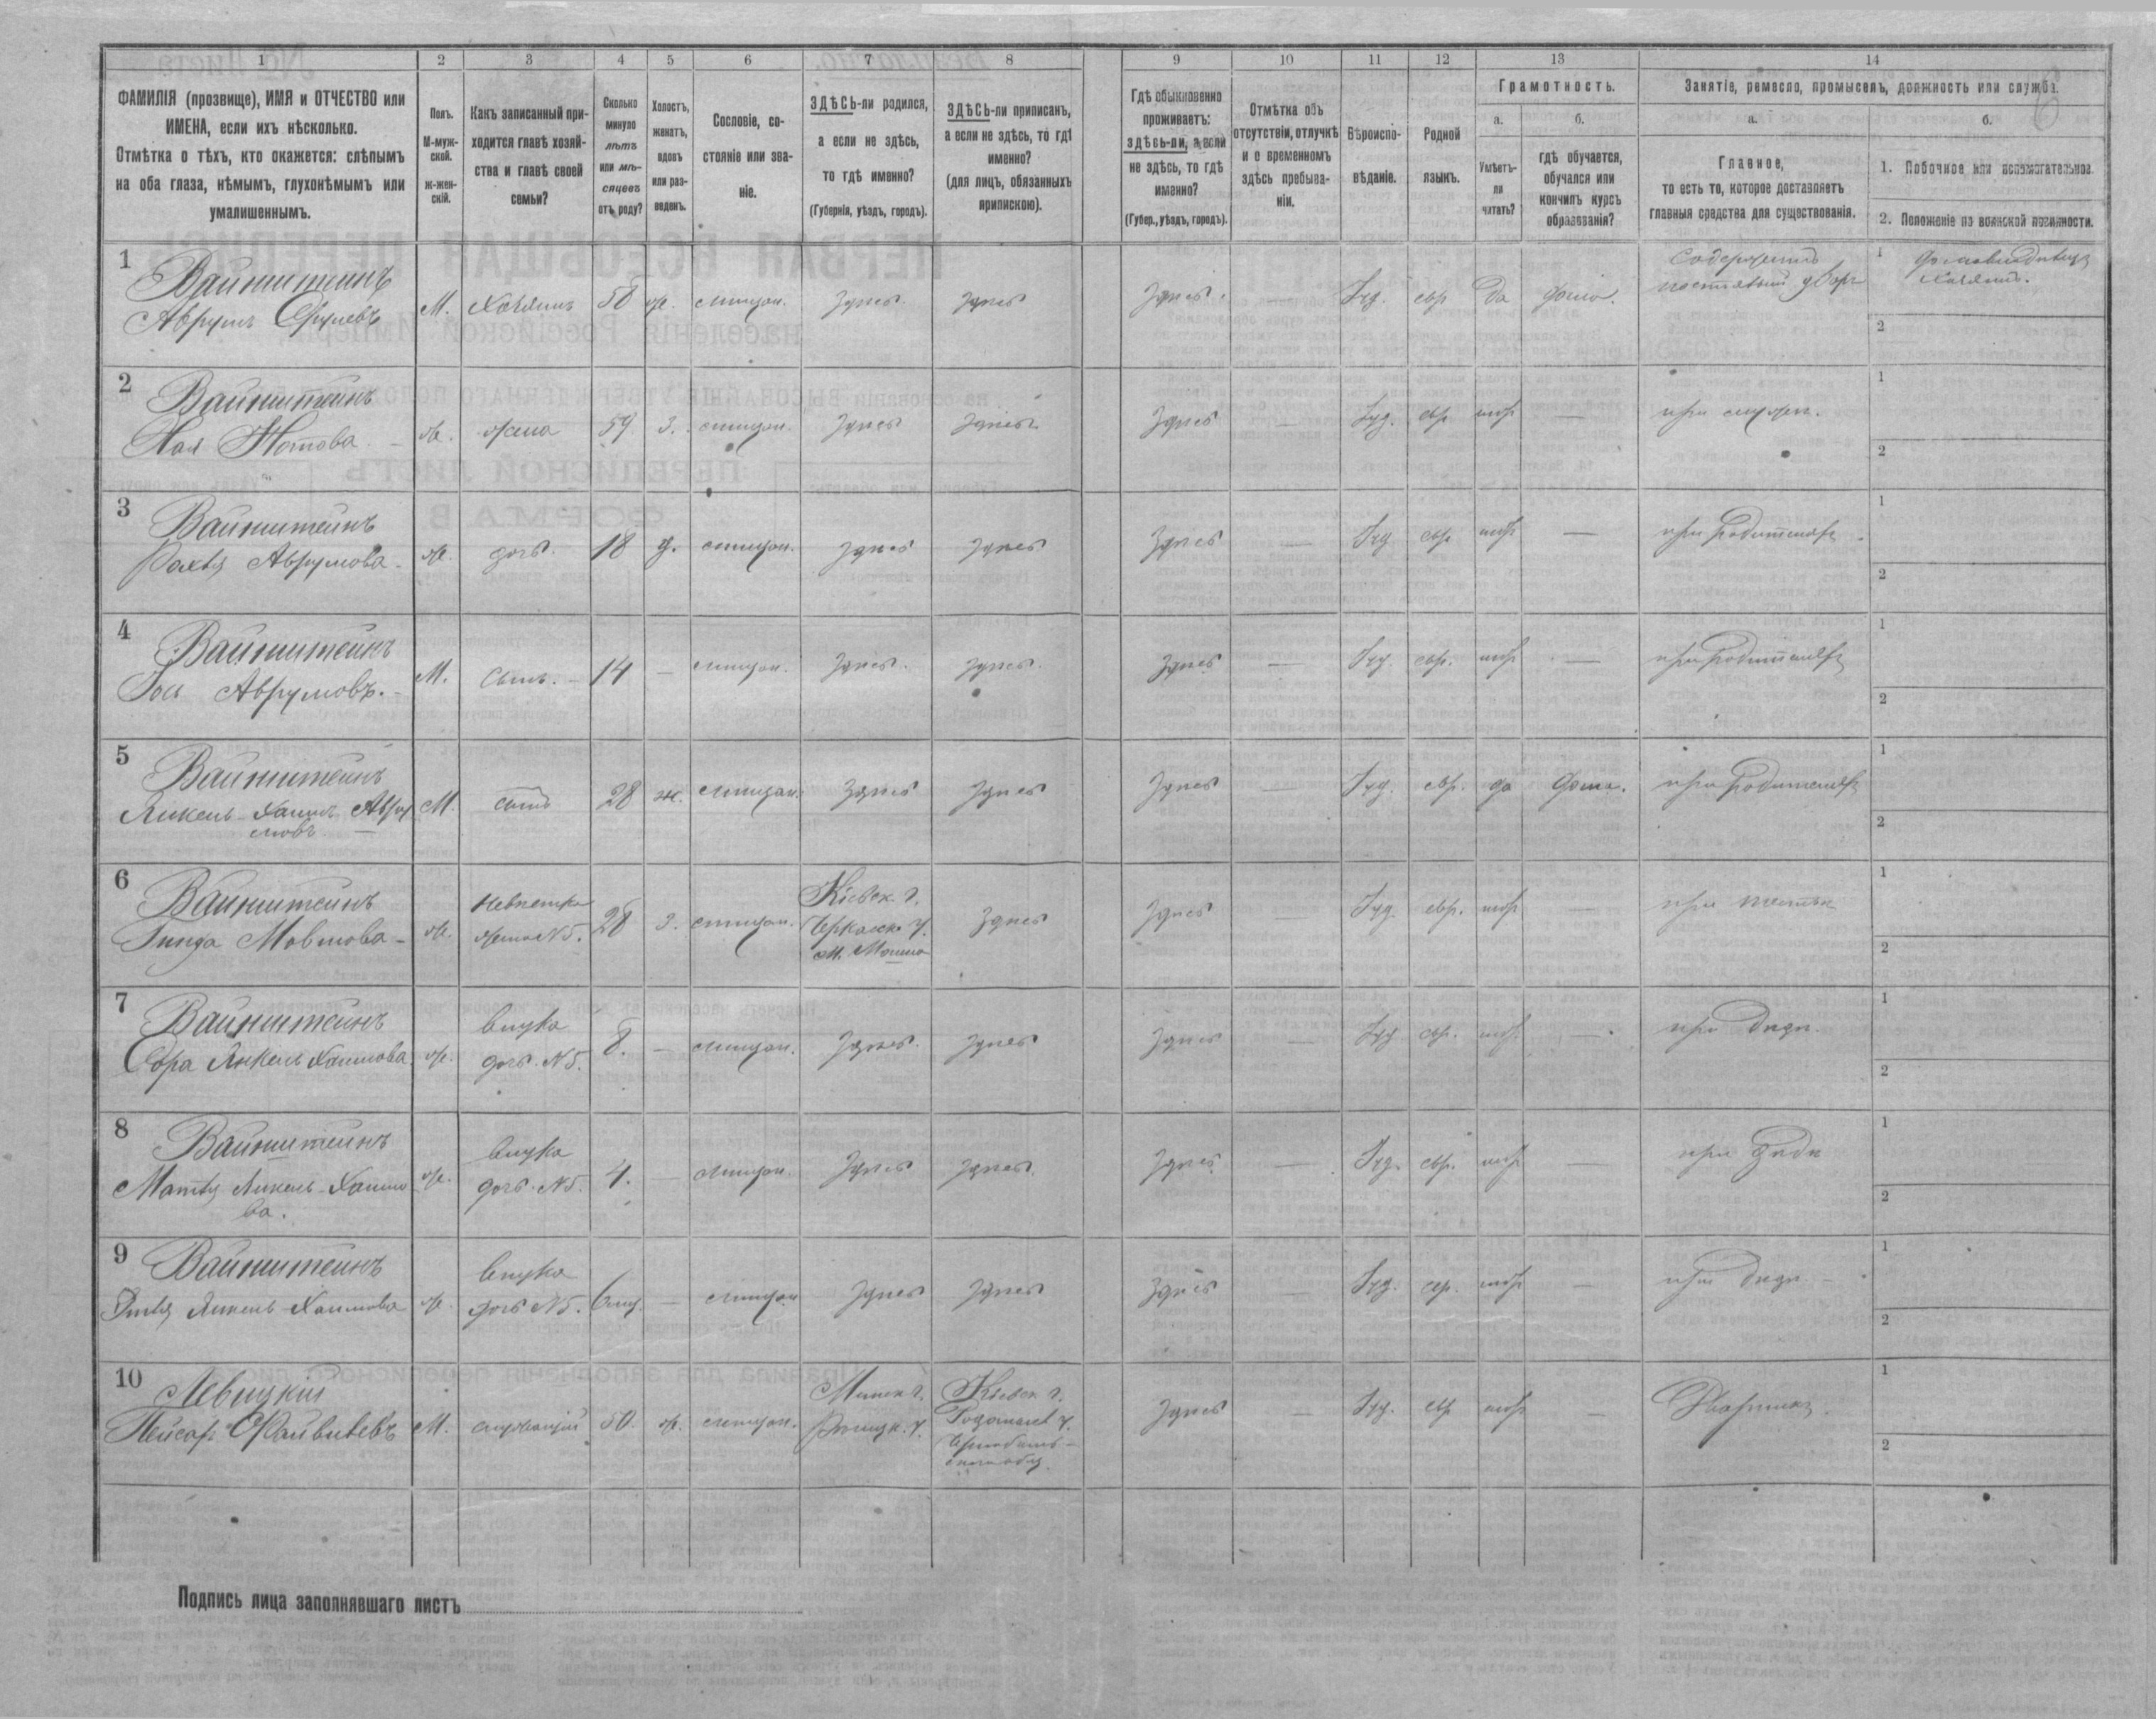 1 2 3 4 5 6 7 8 9 10 11 12 13 14
ФАМИЛІЯ (прозвище), ИМЯ и ОТЧЕСТВО или
ИМЕНА, если ихъ нѣсколько.
Отмѣтка о тѣхъ, кто окажется: слѣпымъ
на оба глаза, нѣмымъ, глухонѣмымъ или
умалишеннымъ.
Полъ.
М-муж-
ской.
ж-жен-
скій.
Какъ записанный при-
ходится главѣ хозяй-
ства и главѣ своей
семьи?
Сколько
минуло
лѣтъ
или мѣ-
сяцевъ
отъ роду?
Холостъ,
женатъ,
вдовъ
или раз-
веденъ.
Сословіе, со-
стояніе или зва-
ніе.
ЗДѢСЬ-ли родился,
а если не здѣсь,
то гдѣ именно?
(Губернія, уѣздъ, городъ).
ЗДѢСЬ-ли приписанъ,
а если не здѣсь, то гдѣ
именно?
(для лицъ, обязанныхъ
припискою).
Гдѣ обыкновенно
проживаетъ:
здѣсь-ли, а если
не здѣсь, то гдѣ
именно?
(Губер., уѣздъ, городъ).
Отмѣтка объ
отсутствіи, отлучкѣ
и о временномъ
здѣсь пребыва-
ніи.
Вѣроиспо-
вѣданіе.
Родной
языкъ.
Грамотность.
а.
Умѣетъ-
ли
читать?
б.
гдѣ обучается,
обучался или
кончилъ курсъ
образованія?
Занятіе, ремесло, промыселъ, должность или служба.
а.
Главное,
то есть то, которое доставляетъ
главныя средства для существованія.
б.
1. Побочное или вспомогательное.
2. Положеніе по воинской повинности.
1
Вайнштейнъ
Аврумъ
М. Хозяинъ 58 ж. мѣщан. Здѣсь Здѣсь Здѣсь Іуд. евр да дома.
Содержитъ
постоялый дворъ
1
2
2
Вайнштейнъ
Хая Нотова
ж. жена 59 З. мѣщан. Здѣсь Здѣсь Здѣсь — Іуд. евр — при мужѣ.
1
2
3
Вайнштейнъ
Аврумова
ж. дочь. 18 мѣщан. Здѣсь Здѣсь Здѣсь — Іуд евр — при родителяхъ
1
2
4
Вайнштейнъ
Іось Аврумовъ.
М. сынъ. 14 — мѣщан. Здѣсь Здѣсь Здѣсь — Іуд. евр. — при родителяхъ
1
2
5
Вайнштейнъ
Янкель-Хаимъ Авру
мовъ
М. сынъ 28 ж. мѣщан. Здѣсь Здѣсь Здѣсь — Іуд. евр. да дома. при родителяхъ
1
2
6
Вайнштейнъ
Мовшова
ж.
невѣстка
жена N5.
28 З. мѣщан.
Кіевск. г.
Черкасск. у.
м. Мошно
Здѣсь Здѣсь — Іуд. евр. —
1
2
7
Вайнштейнъ
Сора Янкель Хаимова
ж.
внука
дочь N5.
8. — мѣщан. Здѣсь Здѣсь Здѣсь — Іуд евр. — при дѣдѣ.
1
2
8
Вайнштейнъ
Янкель-Хаимо
ва.
ж.
внука
дочь N5.
4. — мѣщан. Здѣсь Здѣсь Здѣсь — Іуд. евр. — при дѣдѣ
1
2
9
Вайнштейнъ
Янкель-Хаимова
ж.
внука
дочь N5.
6 мѣс. — мѣщан Здѣсь Здѣсь Здѣсь — Іуд. евр. — при дѣдѣ.
1
2
10
Левицкій
Пейсах
М. служащій 50. ж. мѣщан.
Минск г.
Рѣчицк. у.
Кіевск г.
Радомысл. у.
Здѣсь — Іуд. евр — Дворникъ.
1
2
Подпись лица заполнявшаго листъ